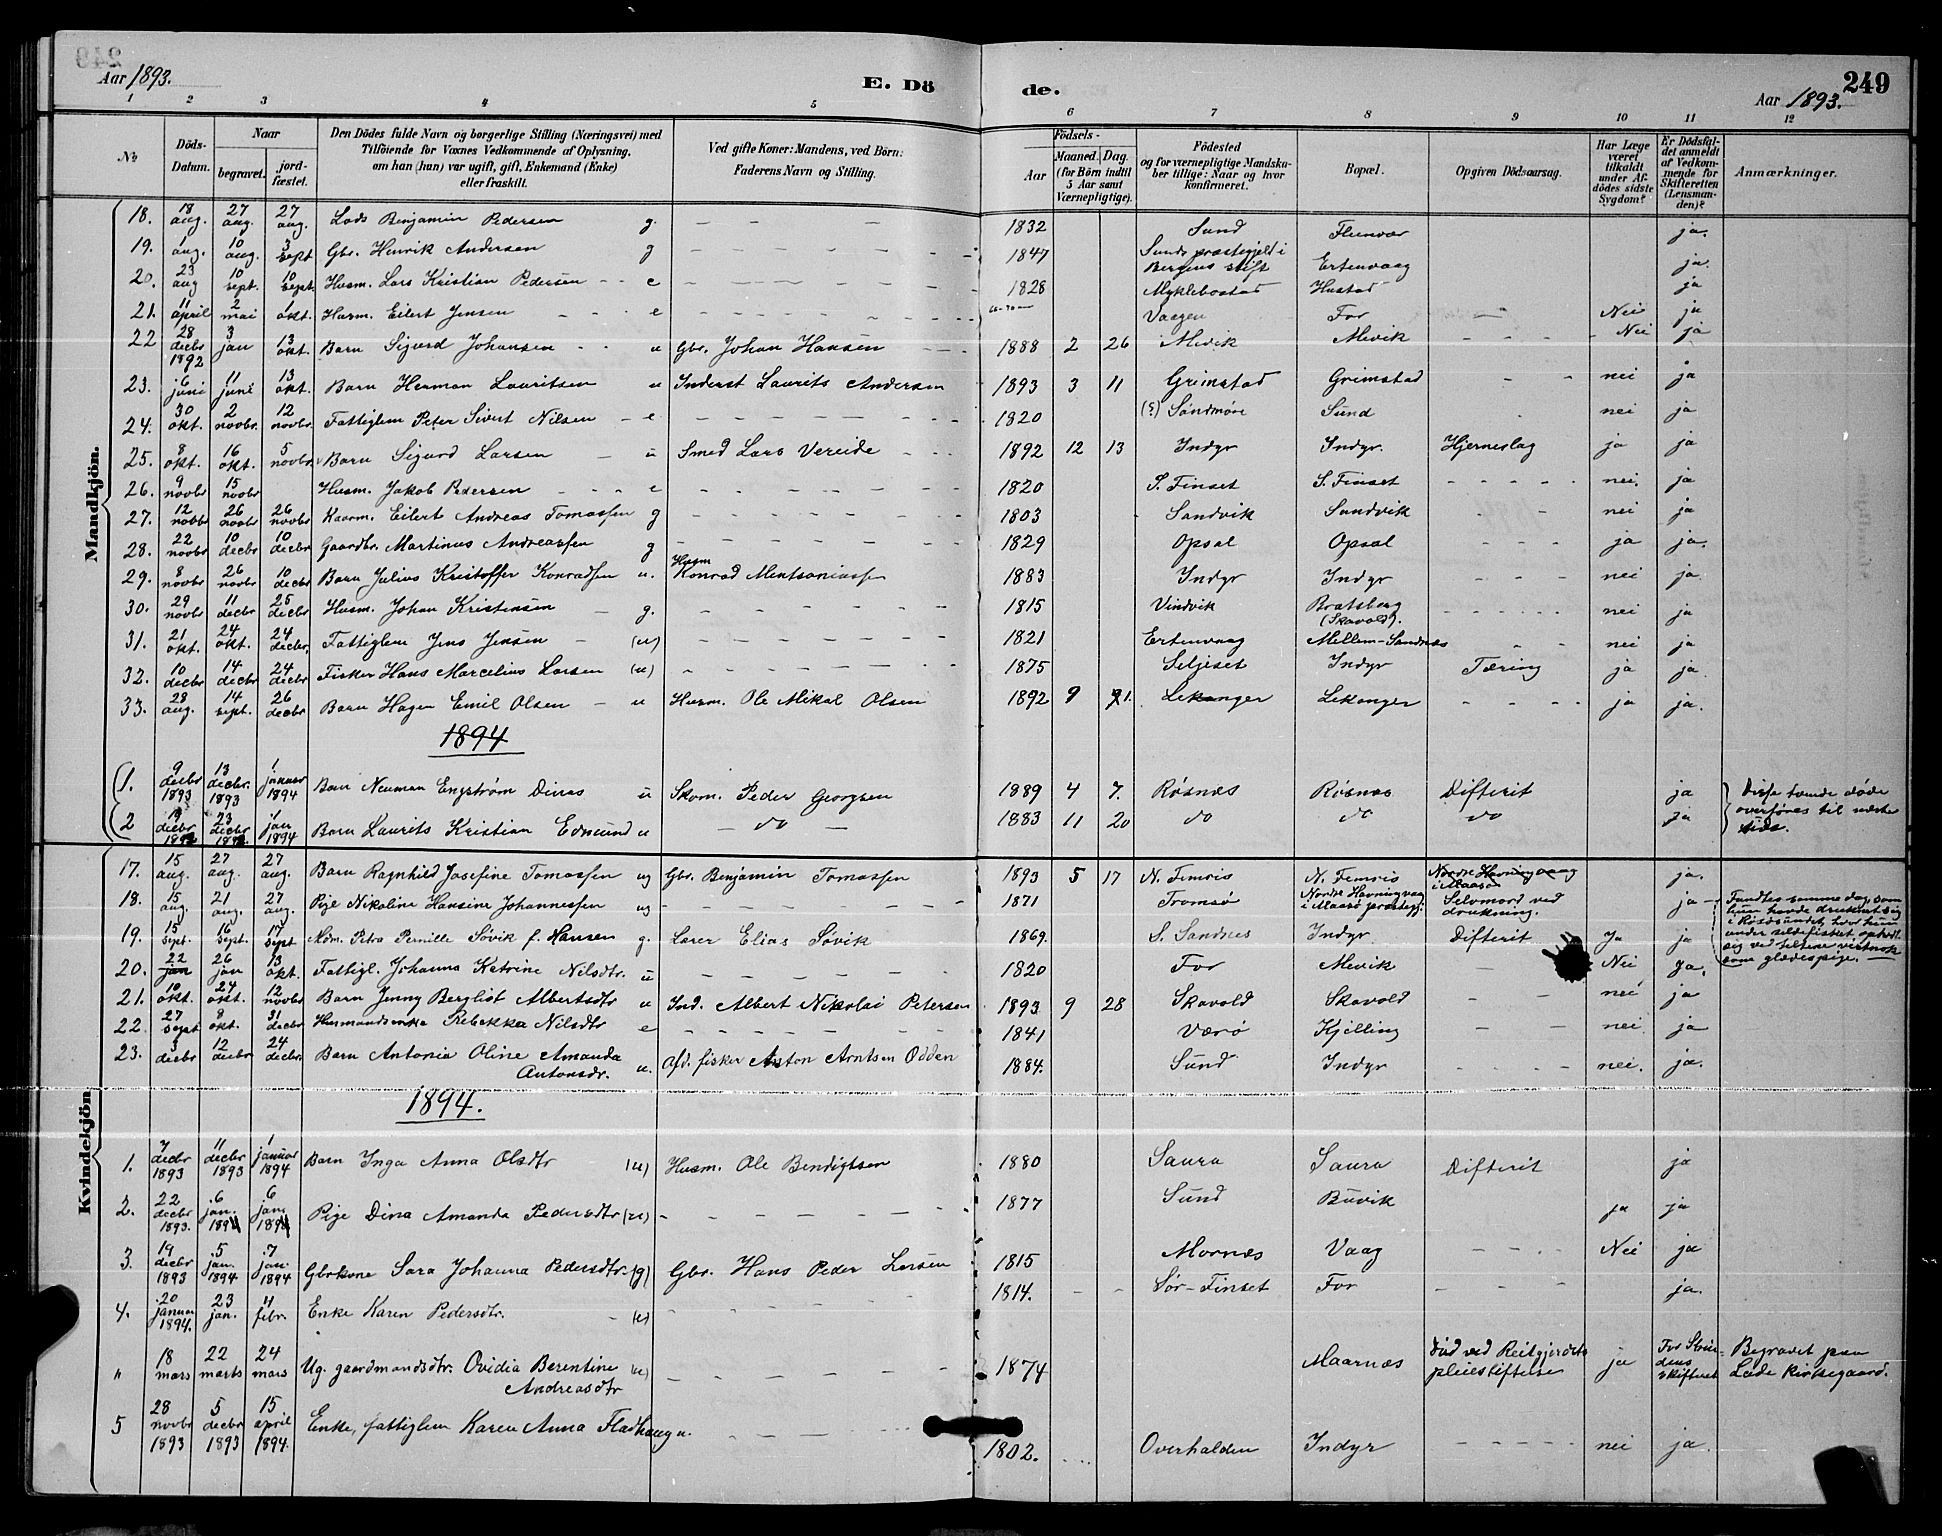 249
Aar 1893. E. Dö de. Aar 1893.
1 2 3 4 5 6 7 8 9 10 11 12
№ Döds-Datum. Naar begravet. jord-fæstet. Den Dödes fulde Navn og borgerlige Stilling (Næringsvei) med Tilföiende for Voxnes Vedkommende af Oplysning, om han (hun) var ugift, gift, Enkemand (Enke) eller fraskilt. Ved gifte Koner: Mandens, ved Börn: Faderens Navn og Stilling. Födsels- Aar Maaned. Dag. (for Börn indtil 5 Aar samt Værnepligtige). Födested og for værnepligtige Mandskaber tillige: Naar og hvor konfirmeret. Bopæl. Opgiven Dödsaarsag. Har Læge været tilkaldt under Afdödes sidste Sygdom? Er Dödsfaldet anmeldt af Vedkommende for Skifteretten (Lensmanden)? Anmærkninger.
Mandkjön.
18. 18 aug. 27 aug. 27 aug. Lods Benjamin Pedersen g. 1832 Sund Fleinvær ja.
19. 1 aug. 10 aug. 3 sept Gbr. Henrik Andersen g 1847 Sunds præstegjeld i Bergens stift Ertenvaag ja.
20. 23 aug 10 sept. 10 sept. Husm. Lars Kristian Pedersen e 1828 Myklebostad Hustad ja
21. 11 april 2 mai 1 okt. Husm. Eilert Jensen e Vaagen For Nei ja
22 28 decbr 1892 3 jan 13 okt. Barn Sigurd Johansen u Gbr. Johan Hansen 1888 2 26 Mevik Mevik Nei ja
23. 6 juni 11 juni 13 okt. Barn Herman Lauritsen u Inderst Laurits Andersen 1893 3 11 Grimstad Grimstad nei ja
24. 30 okt. 2 novbr. 12 novbr. Fattiglem Peter Sivert Nilsen e 1820 (?) Søndmøre Sund nei ja
25. 8 okt. 16 okt. 5 novbr. Barn Sigurd Larsen u Smed Lars Vereide 1892 12 13 Indyr Indyr Hjerneslag ja ja
26. 9 novbr 15 novbr Husm. Jakob Pedersen e 1820 S. Finset S. Finset nei. ja
27. 12 novbr 26 novbr 26 novbr Kaarm. Eilert Andreas Tomassen g 1803 Sandvik Sandvik nei ja
28. 22 novbr 10 decbr 10 decbr Gaardbr. Martinus Andreassen g 1829 Opsal Opsal ja ja.
29. 8 novbr 26 novbr 10 decbr Barn Julius Kristoffer Konradsen u. Husm Konrad Mentsoniassen 1883 Indyr Indyr nei ja
30. 29 novbr 11 decbr 25 decbr Husm. Johan Kristensen g. 1815 Vindvik Bratsberg (Skavold). nei ja
31. 21 okt. 24 okt. 24 decbr. Fattiglem Jens Jensen (u) 1821 Ertenvaag Mellem-Sandnes nei ja
32. 10 decbr 14 decbr 24 decbr Fisker Hans Marcelius Larsen (u) 1875 Seljeset Indyr Tæring ja ja
33. 28 aug. 14 sept. 26 decbr Barn Hagen Emil Olsen u Husm. Ole Mikal Olsen 1892 9 21. Lekanger Lekanger ja ja.
1894
1. 9 decbr 1893 13 decbr. 1893 1 januar 1894 Barn Neuman Engstrøm Dines u Skom. Peder Georgsen 1889 4 7. Røsnes Røsnes Difterit ja Disse tvende døde overføres til næste side.
2 19 decbr 1893 23 decbr 1893 1 jan 1894 Barn Laurits Kristian Edmund u do 1883 11 20 do do do ja
Kvindekjön
17. 15 aug. 27 aug. 27 aug. Barn Ragnhild Josefine Tomassen ug Gbr. Benjamin Tomassen 1893 5 17 N. Femris N. Femris Nordre Havningvaag i Maasø ja.
18. 15 aug. 21 aug. 27 aug. Pige Nikoline Hansine Johannessen ug 1871 Tromsø Nordre Havningvaag i Maasø præstegj. Selvmord ved drukning. ja Fundtes samme dag, som hun havde druknet sig i Røssøsundet, hvor hun under sildefisket opholdt sig ved teltene vistnok som glædespige.
19. 15 sept. 16 sept. 17 sept Mdm. Petra Pernille Søvik f. Hansen g. Lærer Elias Søvik 1869. S. Sandnes Indyr. Difterit Ja ja
20. 22 jan 26 jan 13 okt. Fattigl. Johanna Katrine Nilsdtr. u 1820 For Mevik Nei Ja.
21. 10 okt. 24 okt. 12 novbr Barn Jenny Bergliot Albertsdtr u Ind. Albert Nikolai Petersen 1893 9 28 Skavold Skavold nei ja
22. 27 sept 8 okt. 31 decbr Husmandsenke Rebekka Nilsdtr e 1841 Værø Kjelling nei ja
23. 3 decbr 12 decbr 24 decbr. Barn Antonia Oline Amanda Antonsdr. u. Afd. fisker Anton Arntsen Odden 1884. Sund Indyr nei. ja.
1894.
1. 7 decbr 1893 11 decbr 1893 1 januar 1894 Barn Inga Anna Olsdtr (u) Husm. Ole Bendigtsen 1880 Saura Saura Difterit ja
2. 22 decbr 1893. 6 jan. 1894 6 jan. 1894 Pige Dina Amanda Pedersdtr (u) 1877 Sund Buvik ja ja
3. 19 decbr 1893 5 jan. 1894 7 jan. 1894 Gbrkone Sara Johanna Pedersdtr. (g) Gbr. Hans Peder Larsen 1815 Mornes Vaag Nei ja
4. 20 januar 1894. 23 jan. 4 febr. Enke Karen Pedersdtr. (e) 1814. Sør-Finset For ja.
" 18 mars 22 marts 24 mars Ug. gaardmandsdtr. Ovidia Berentine Andreasdtr (u) 1874 Maarnes død ved Reitgjerdets pleiestiftelse ja For Strindens skifteret Begravet paa Lade kirkegaard.
5 28 novbr 1893 5 decbr 1893 15 april 1894. Enke, fattiglem Karen Anna Fladhaug u. 1802. Overhalden Indyr nei ja.